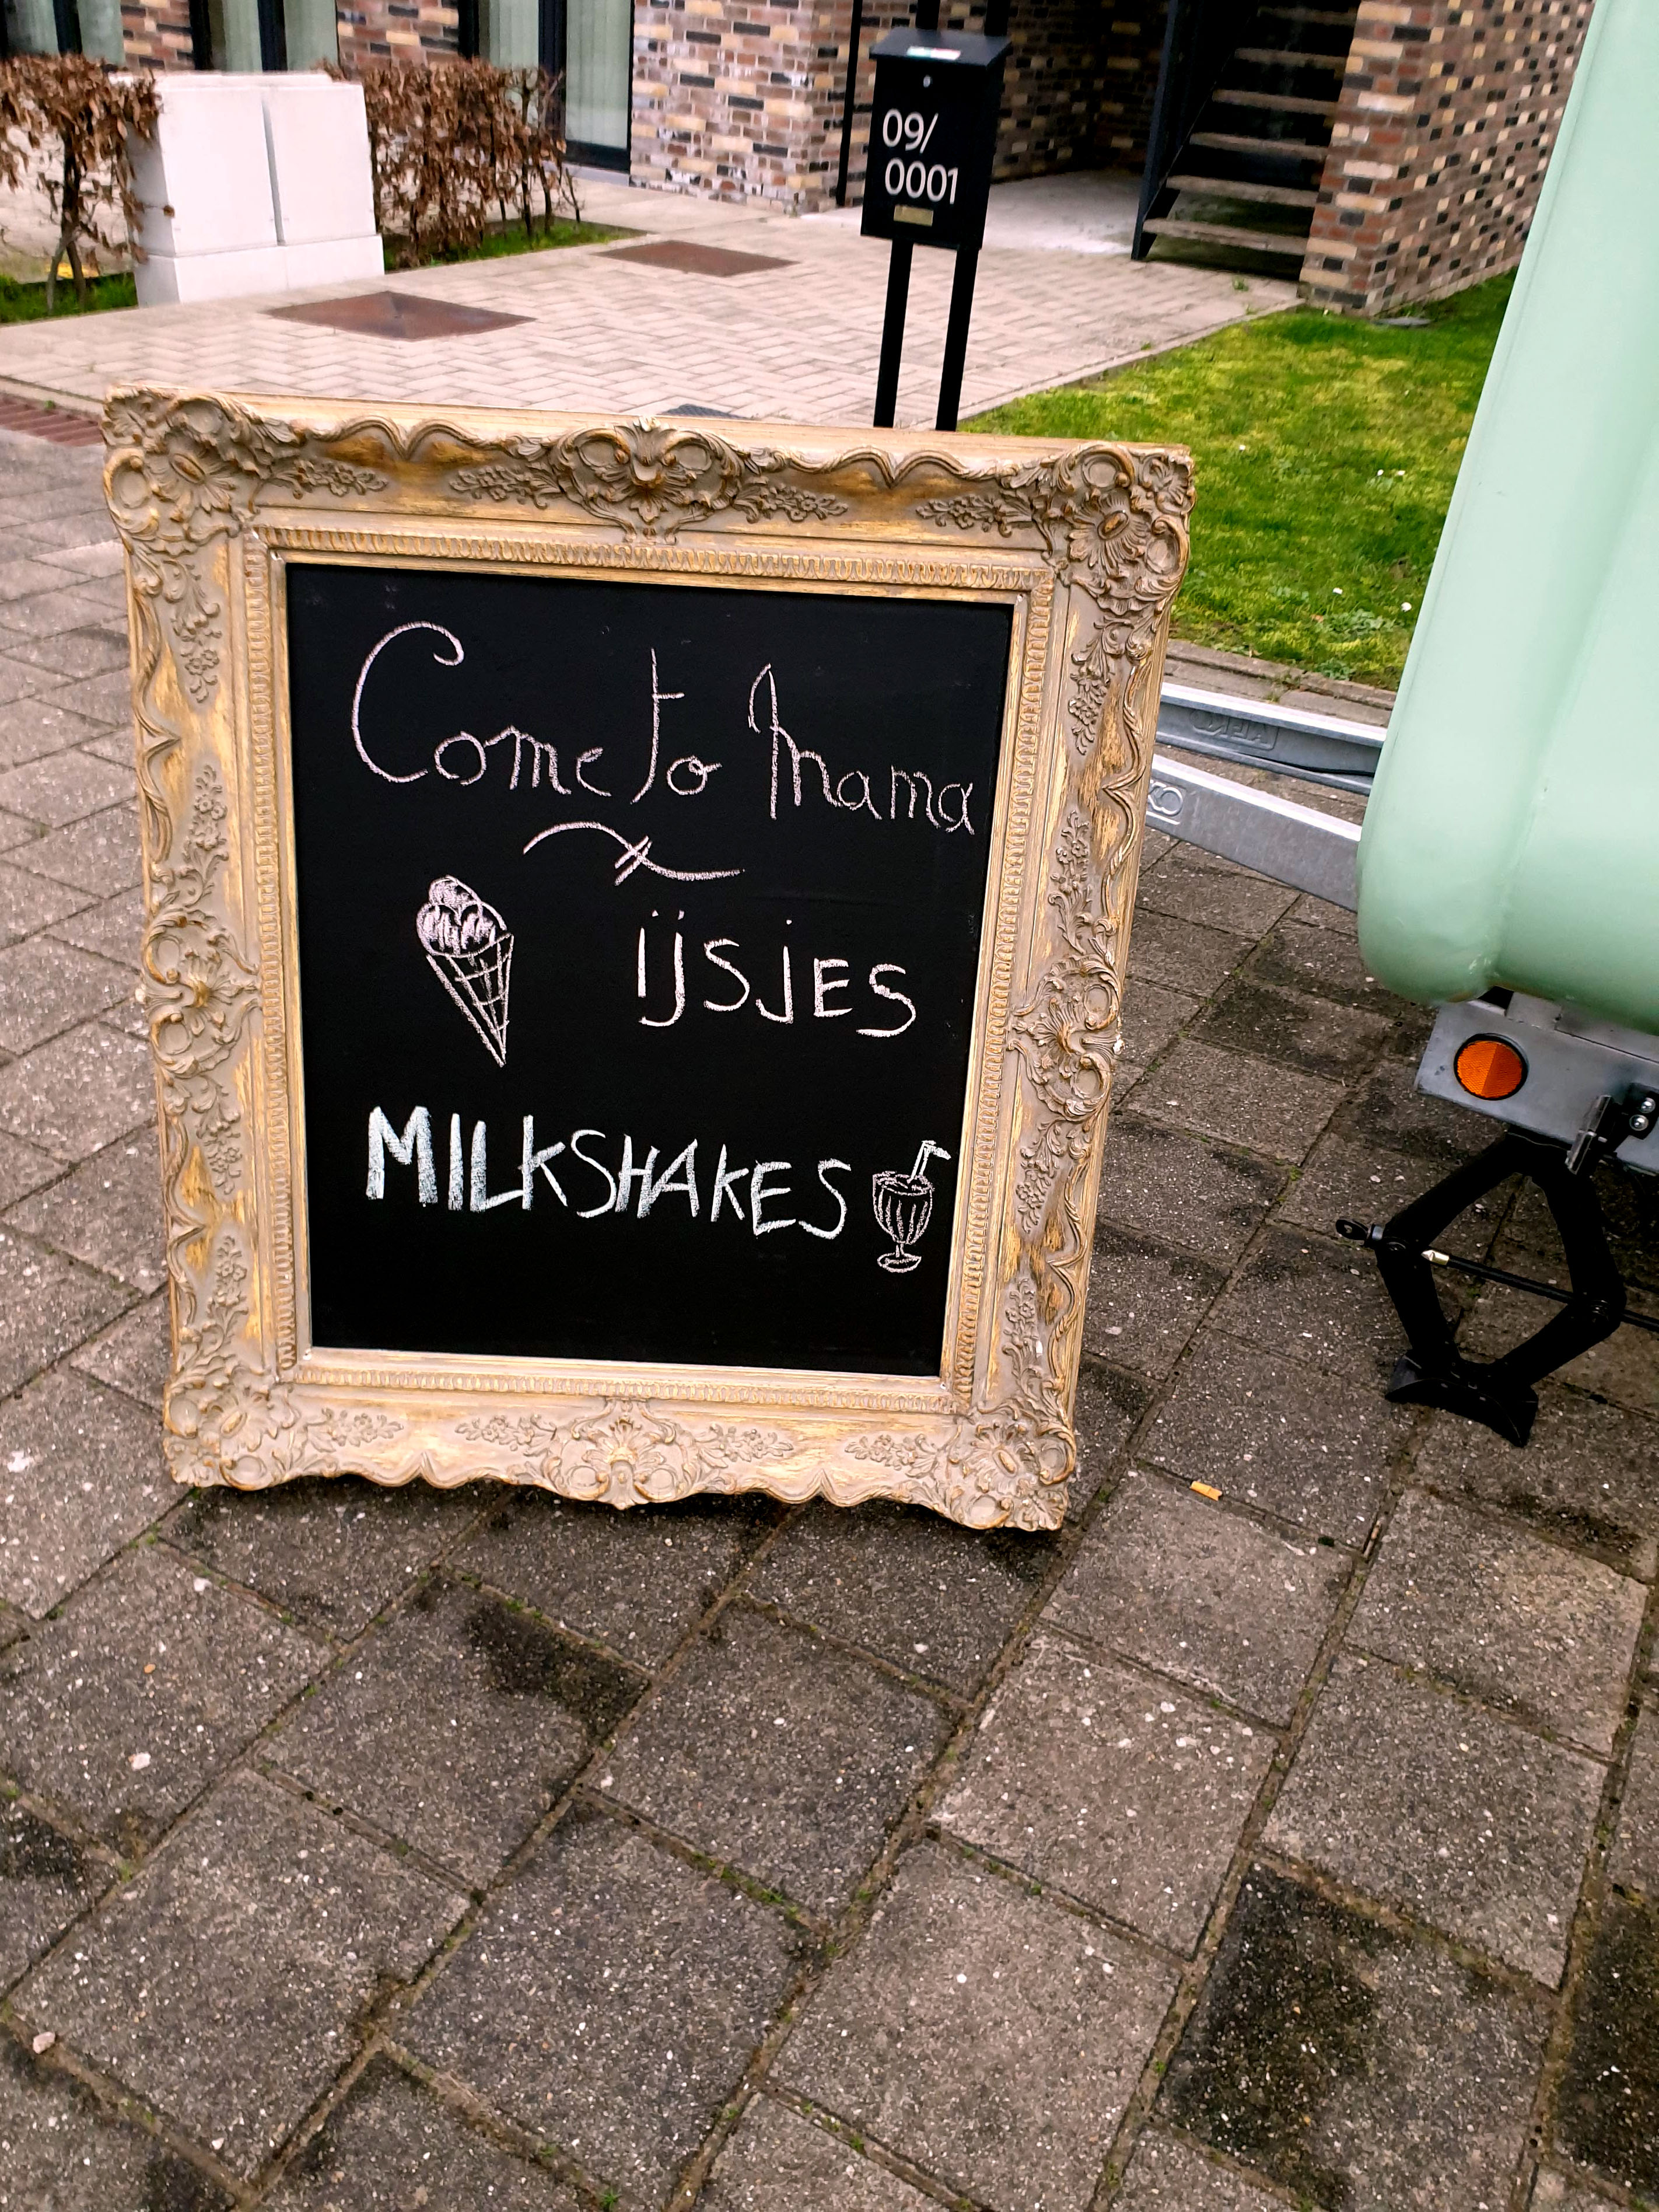 09/
0001
Come to Mama
ijsjes
MILKSHAKES